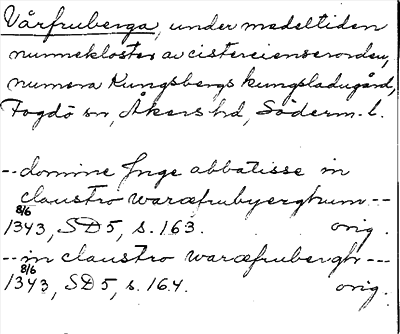 Vårfruberga, under medeltiden
nunnekloster av cistercienserorden,
numera Kungsbergs kungsladugård,
Fogdö sn, Åkers hd, Söderm. l.
-- domine Jnge abbatisse in
claustro waræfrubyerghum --
8/6
1343, SD5, s. 163. orig.
-- in claustro waræfrubergh ---
8/6
1343, SD5, s. 164. orig.